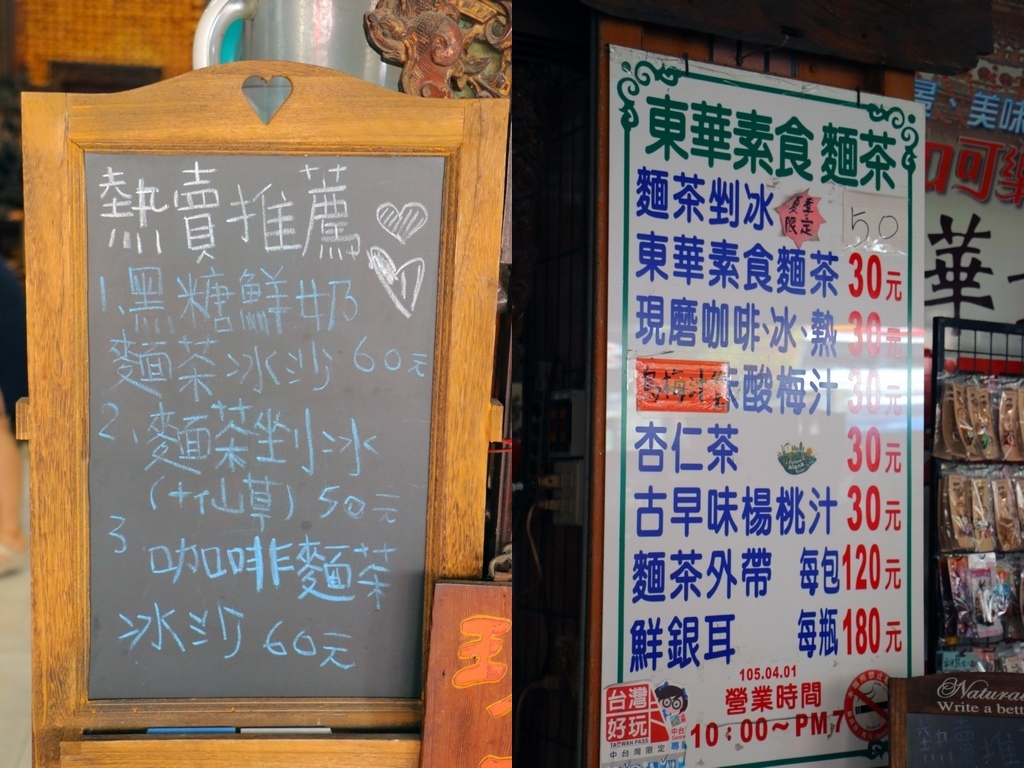 熱賣推薦
1.黑糖鮮奶
麵茶冰沙 60元
2.麵茶剉冰
(+仙草) 50元
3
咖啡麵茶
冰沙 60元
東華素食麵茶
麵茶剉冰 夏季限定 50
東華素食麵茶 30元
現磨咖啡·冰·熱 30元
烏梅汁 酸梅汁 30元
杏仁茶 30元
古早味楊桃汁 30元
麵茶外帶 每包120元
鮮銀耳 每瓶180元
105.04.01
營業時間
10:00~PM7
台灣
好玩
TAIWAN PASS
中台灣限定
、美味
可樂
華
Natura
Write a bett
熱賣推